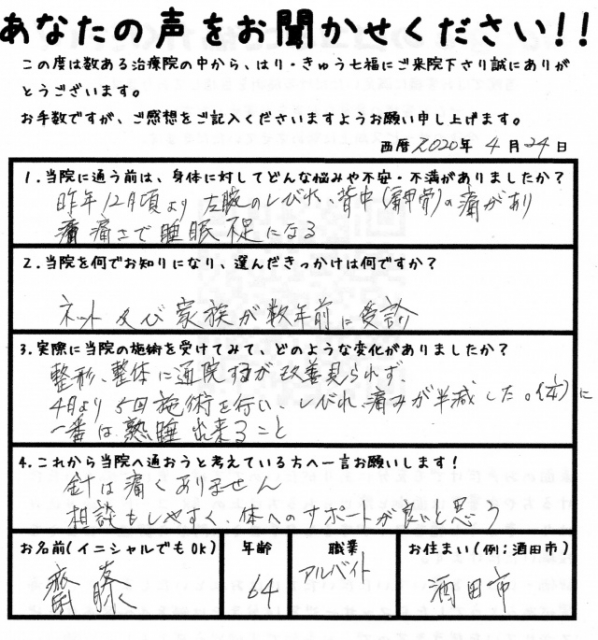 あなたの声をお聞かせください!!
この度は数ある治療院の中から、はり・きゅう七福にご来院下さり誠にありが
とうございます。
お手数ですが、ご感想をご記入くださいますようお願い申し上げます。
西暦2020年 4月24日
1.当院に通う前は、身体に対してどんな悩みや不安・不満がありましたか?
昨年12月頃より左腕のしびれ、背中(肩甲骨)の痛があり
痛さで睡眠不足になる
2.当院を何でお知りになり、選んだきっかけは何ですか?
ネット及び家族が数年前に受診
3.実際に当院の施術を受けてみて、どのような変化がありましたか?
整形、整体に通院するが改善見られず
4月より5回施術を行い、しびれ、痛みが半減した。(1/2)に
一番は熟睡出来ること
4.これから当院へ通おうと考えている方へ一言お願いします!
針は痛くありません
相談もしやすく、体へのサポートが良いと思う
お名前(イニシャルでもOK) 年齢 職業 お住まい(例:酒田市)
齋藤 64 アルバイト 酒田市